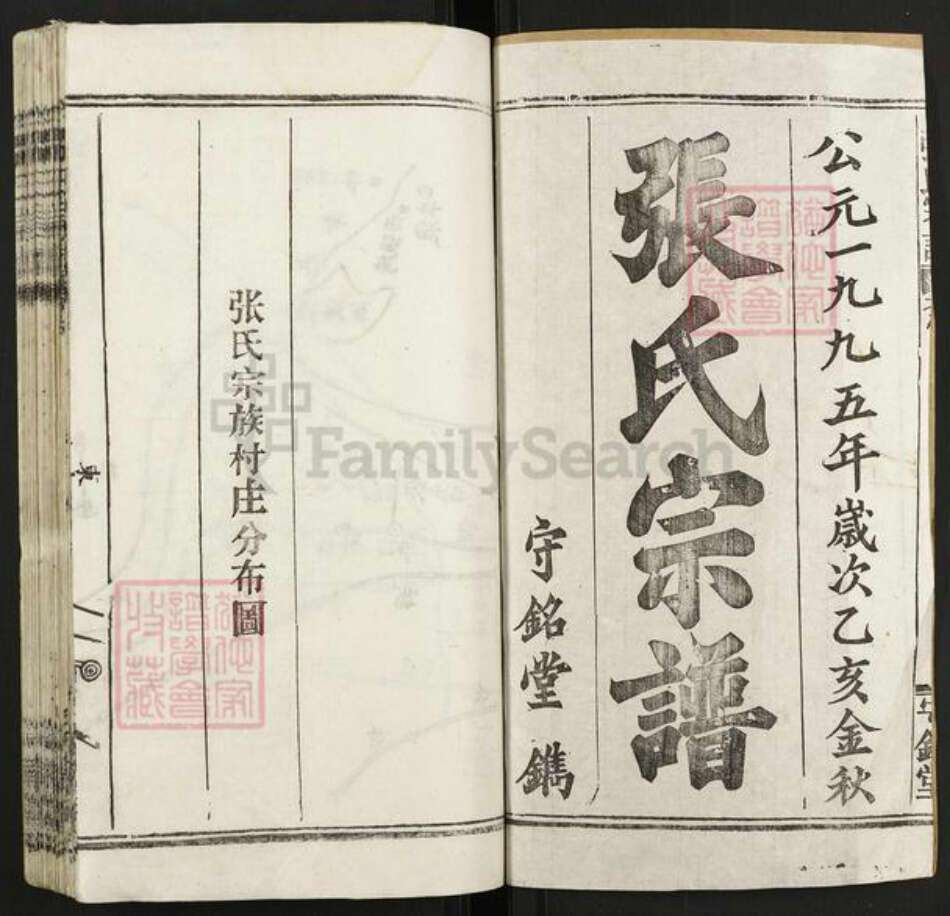 公元一九九五年歲次乙亥金秋
張氏宗譜
守銘堂 鐫
张氏宗族村庄分布圖
東
FamilySearch
譜學會
收藏